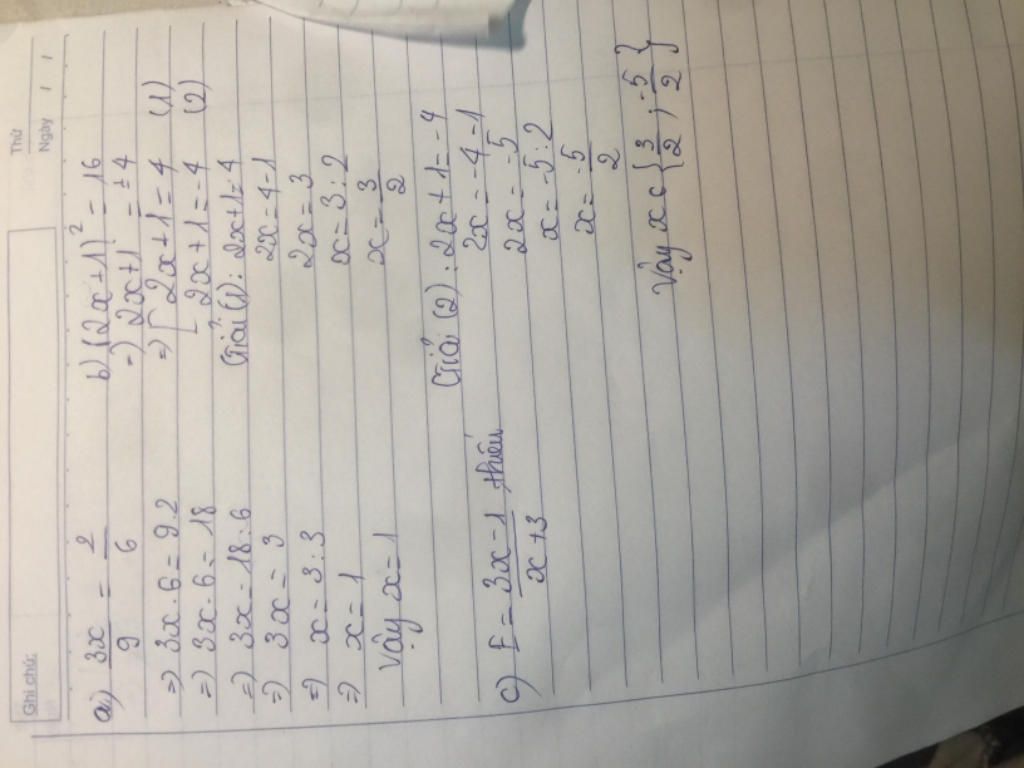 Ghi chú:
Thứ
Ngày
a) 3x/9 = 2/6
=) 3x . 6 = 9.2
=) 3x . 6 = 18
=) 3x = 18 : 6
=) 3x = 3
=) x = 3 : 3
=) x = 1
Vậy x = 1
c) E = 3x - 1/x + 3 thiếu
b) (2x + 1)² = 16
=) 2x + 1 = ± 4
=) [ 2x + 1 = 4 (1)
[ 2x + 1 = -4 (2)
Giải (1): 2x + 1 = 4
2x = 4 - 1
2x = 3
x = 3 : 2
x = 3/2
Giải (2): 2x + 1 = -4
2x = -4 - 1
2x = -5
x = -5 : 2
x = -5/2
Vậy x c { 3/2 ; -5/2 }